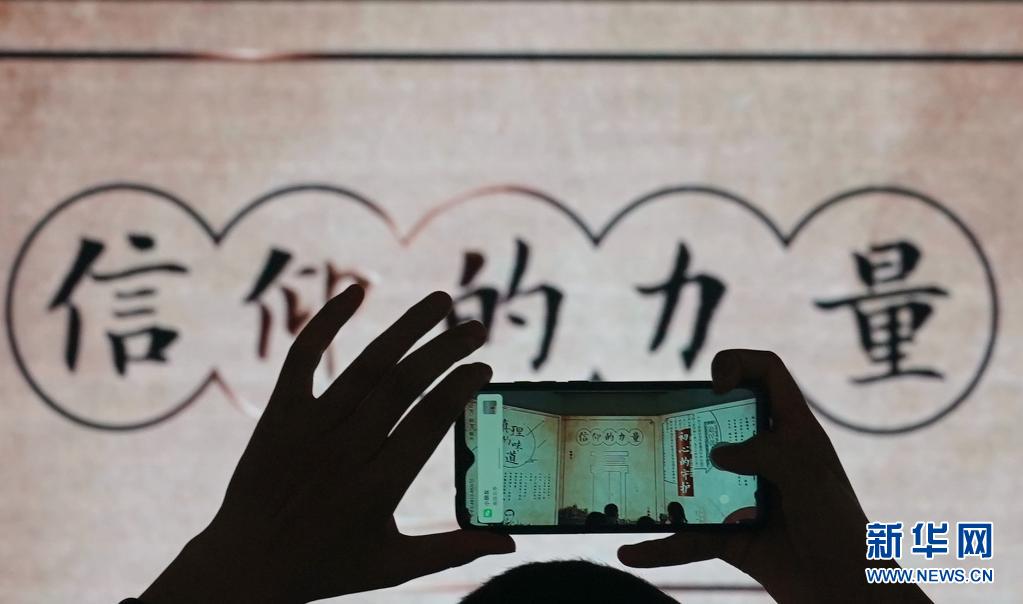 信仰的力量
真理
的味
道
信仰的力量
初心的守护
新华网
WWW.NEWS.CN